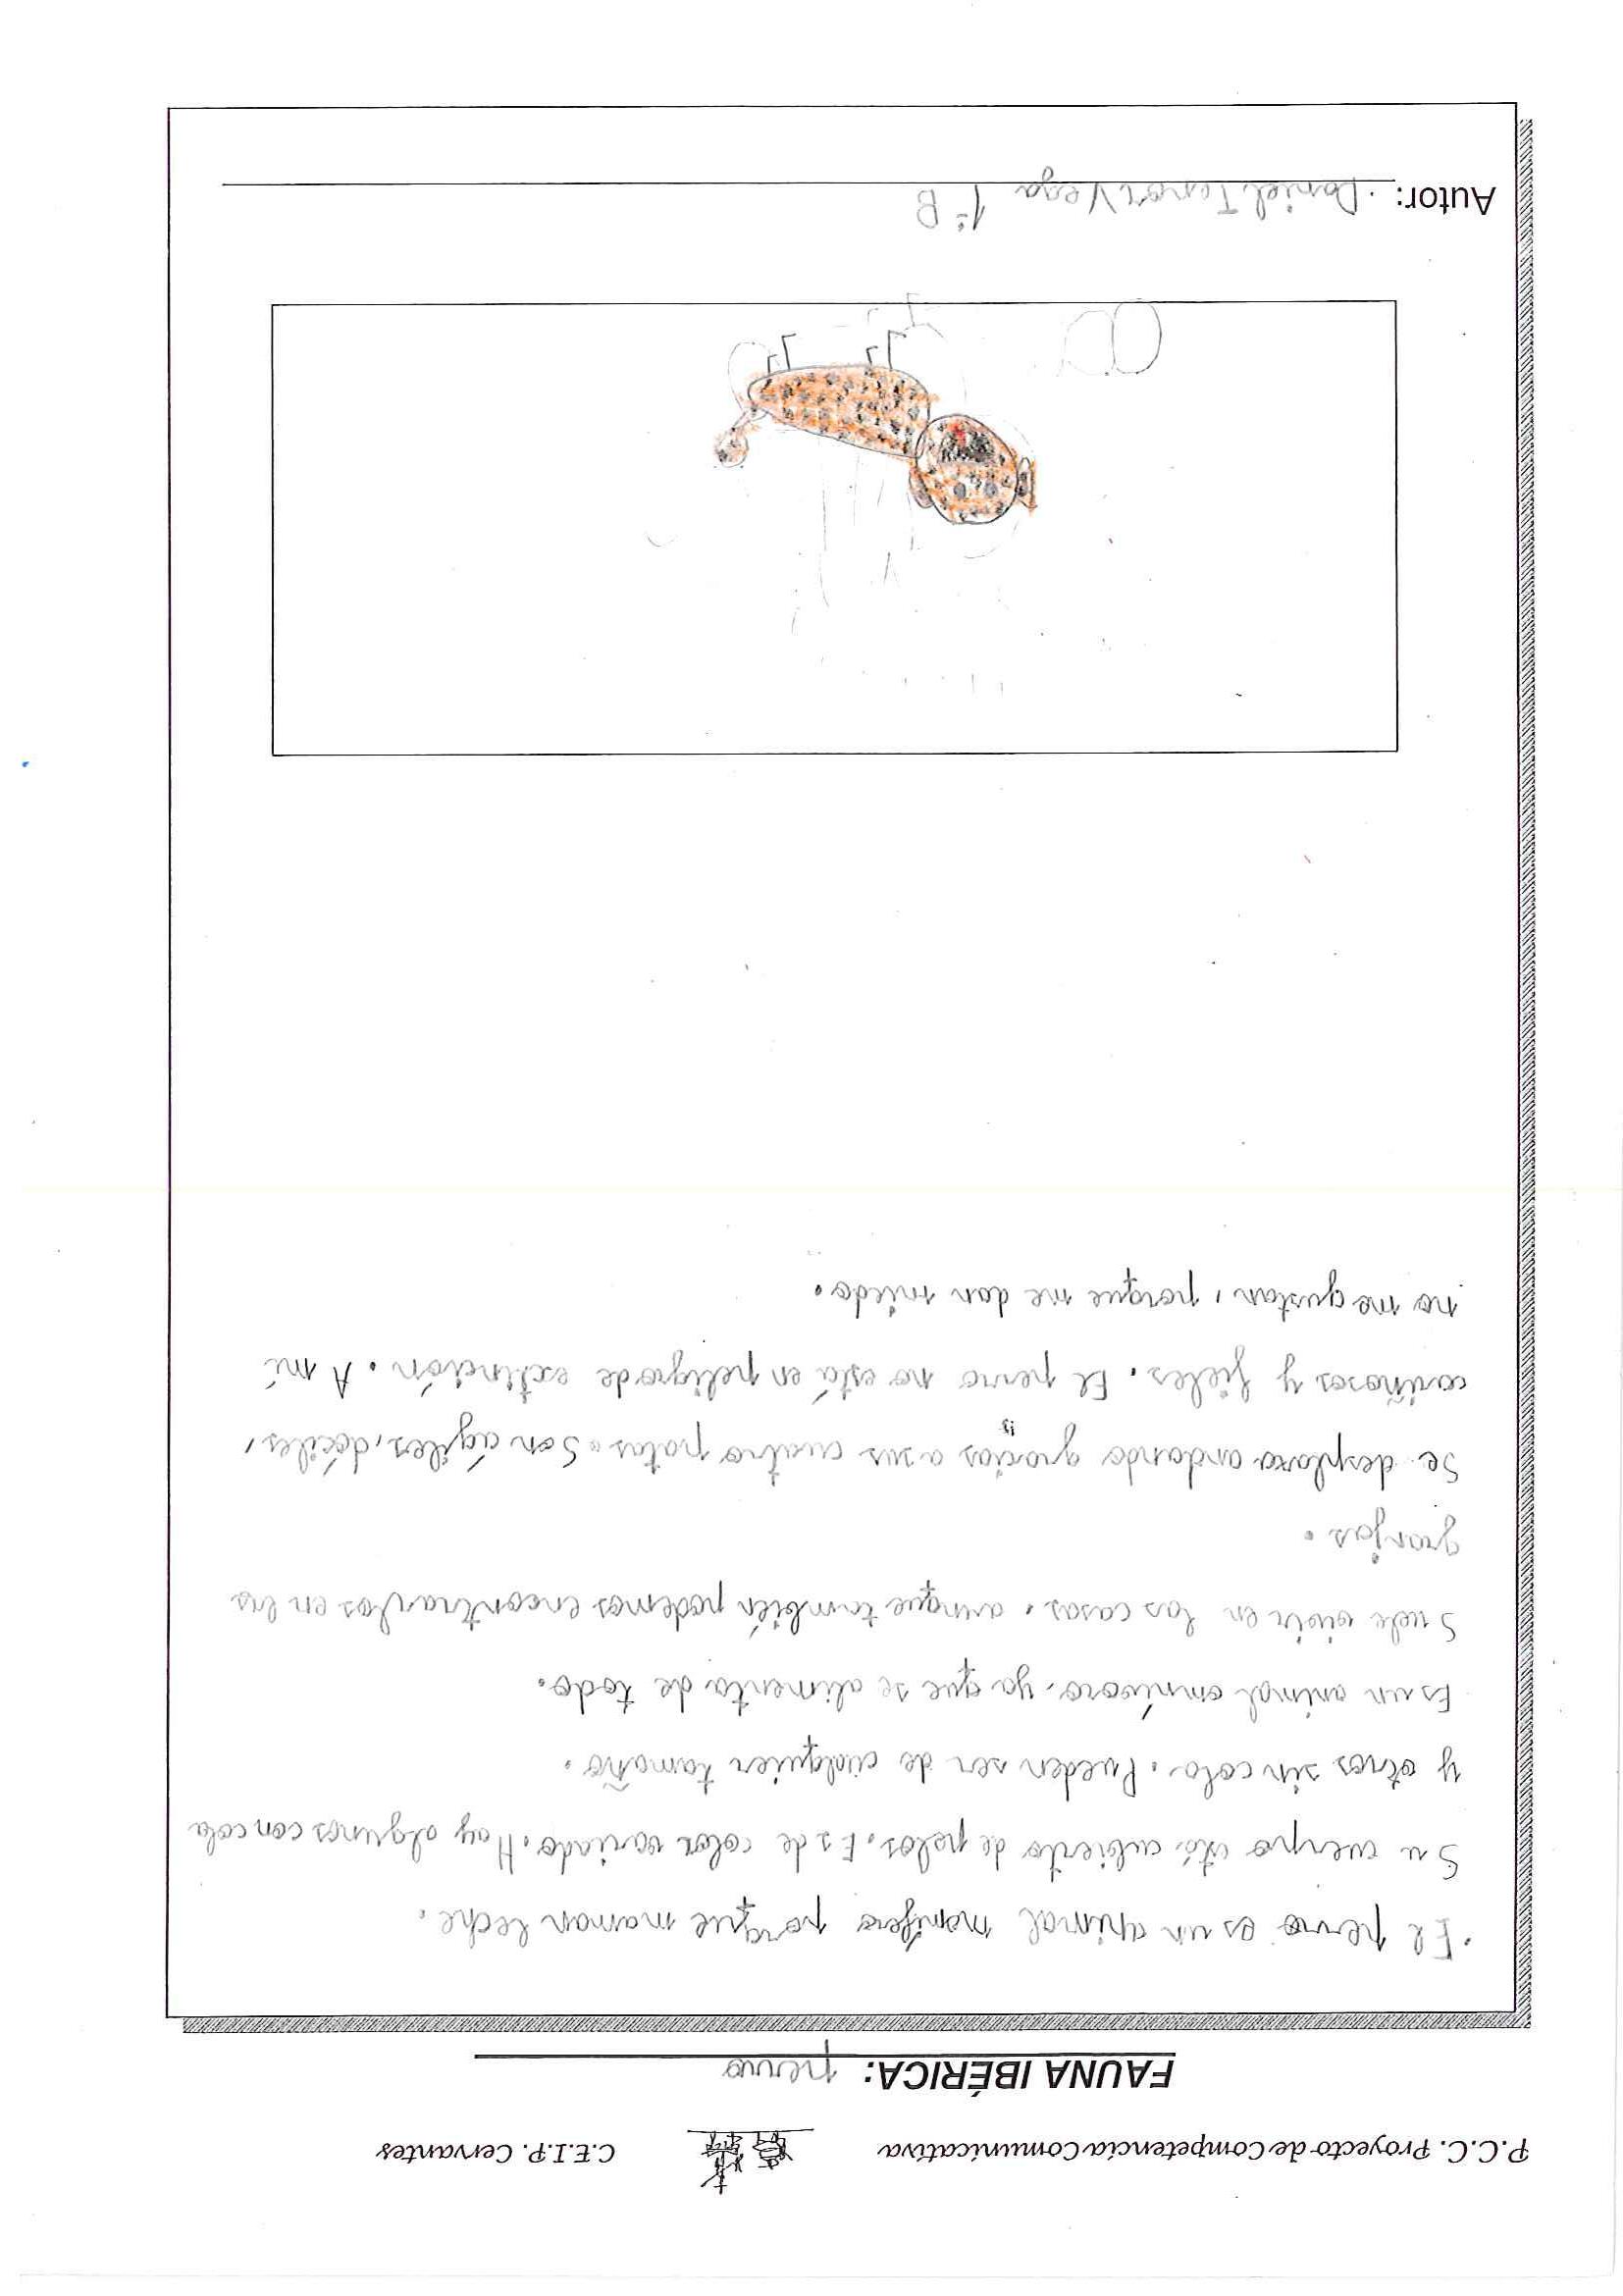 P.C.C. Proyecto de Competencia Comunicativa C.E.I.P. Cervantes
FAUNA IBÉRICA: perro
El perro es un animal mamífero porque maman leche.
Su cuerpo está cubierto de pelos. Es de color variado. Hay algunos con cola
y otros sin cola. Pueden ser de cualquier tamaño.
Es un animal omnívoro, ya que se alimenta de todo.
Suele vivir en las casas, aunque también podemos encontrarlos en las
granjas.
Se desplaza andando gracias a sus cuatro patas. Son ágiles, dóciles,
cariñosos y fieles. El perro no está en peligro de extinción. A mí
no me gustan, porque me dan miedo.
Autor: Daniel Vega 1º B